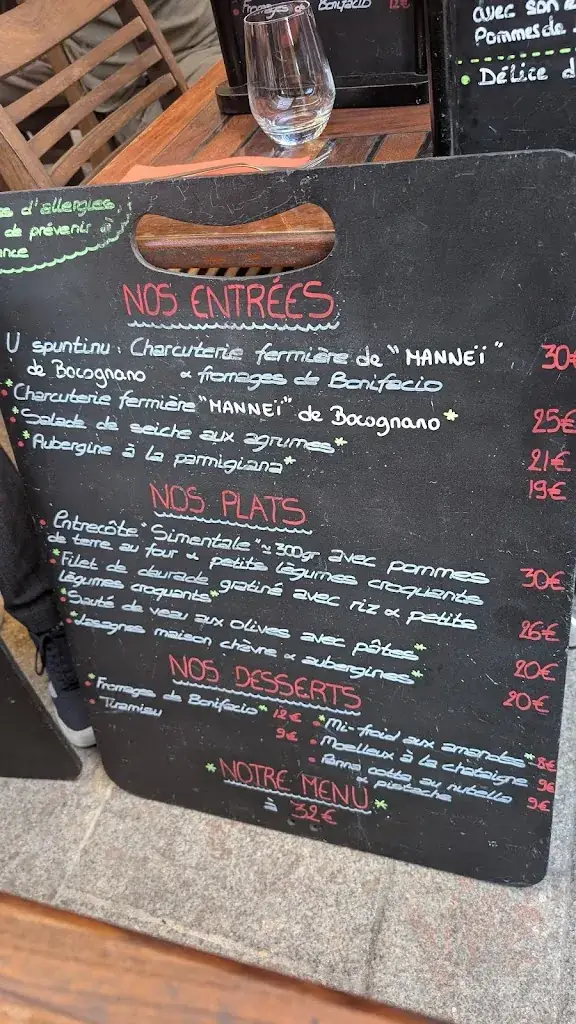 Fromages de Bonifacio 12€
avec son
Pommes de
• Délice d
s d'allergies
de prévenir
NOS ENTRÉES
U spuntinu : Charcuterie fermière de "MANNEÏ" 30€
de Bocognano & fromages de Bonifacio
• Charcuterie fermière "MANNEÏ" de Bocognano* 25€
*• Salade de seiche aux agrumes* 21€
*• Aubergine à la parmigiana* 19€
NOS PLATS
• Entrecôte "Simentale" ≃ 300gr avec pommes
de terre au four & petits légumes croquants 30€
*• Filet de daurade gratiné avec riz & petits
légumes croquants* 26€
*• Sauté de veau aux olives avec pâtes* 20€
*• Lasagnes maison chèvre & aubergines* 20€
NOS DESSERTS
• Fromages de Bonifacio* 12€
• Tiramisu 9€
*• Mi-froid aux amandes* 8€
• Moelleux à la chataigne 9€
• Panna cotta au nutella
& pistache 9€
*NOTRE MENU*
à 32€